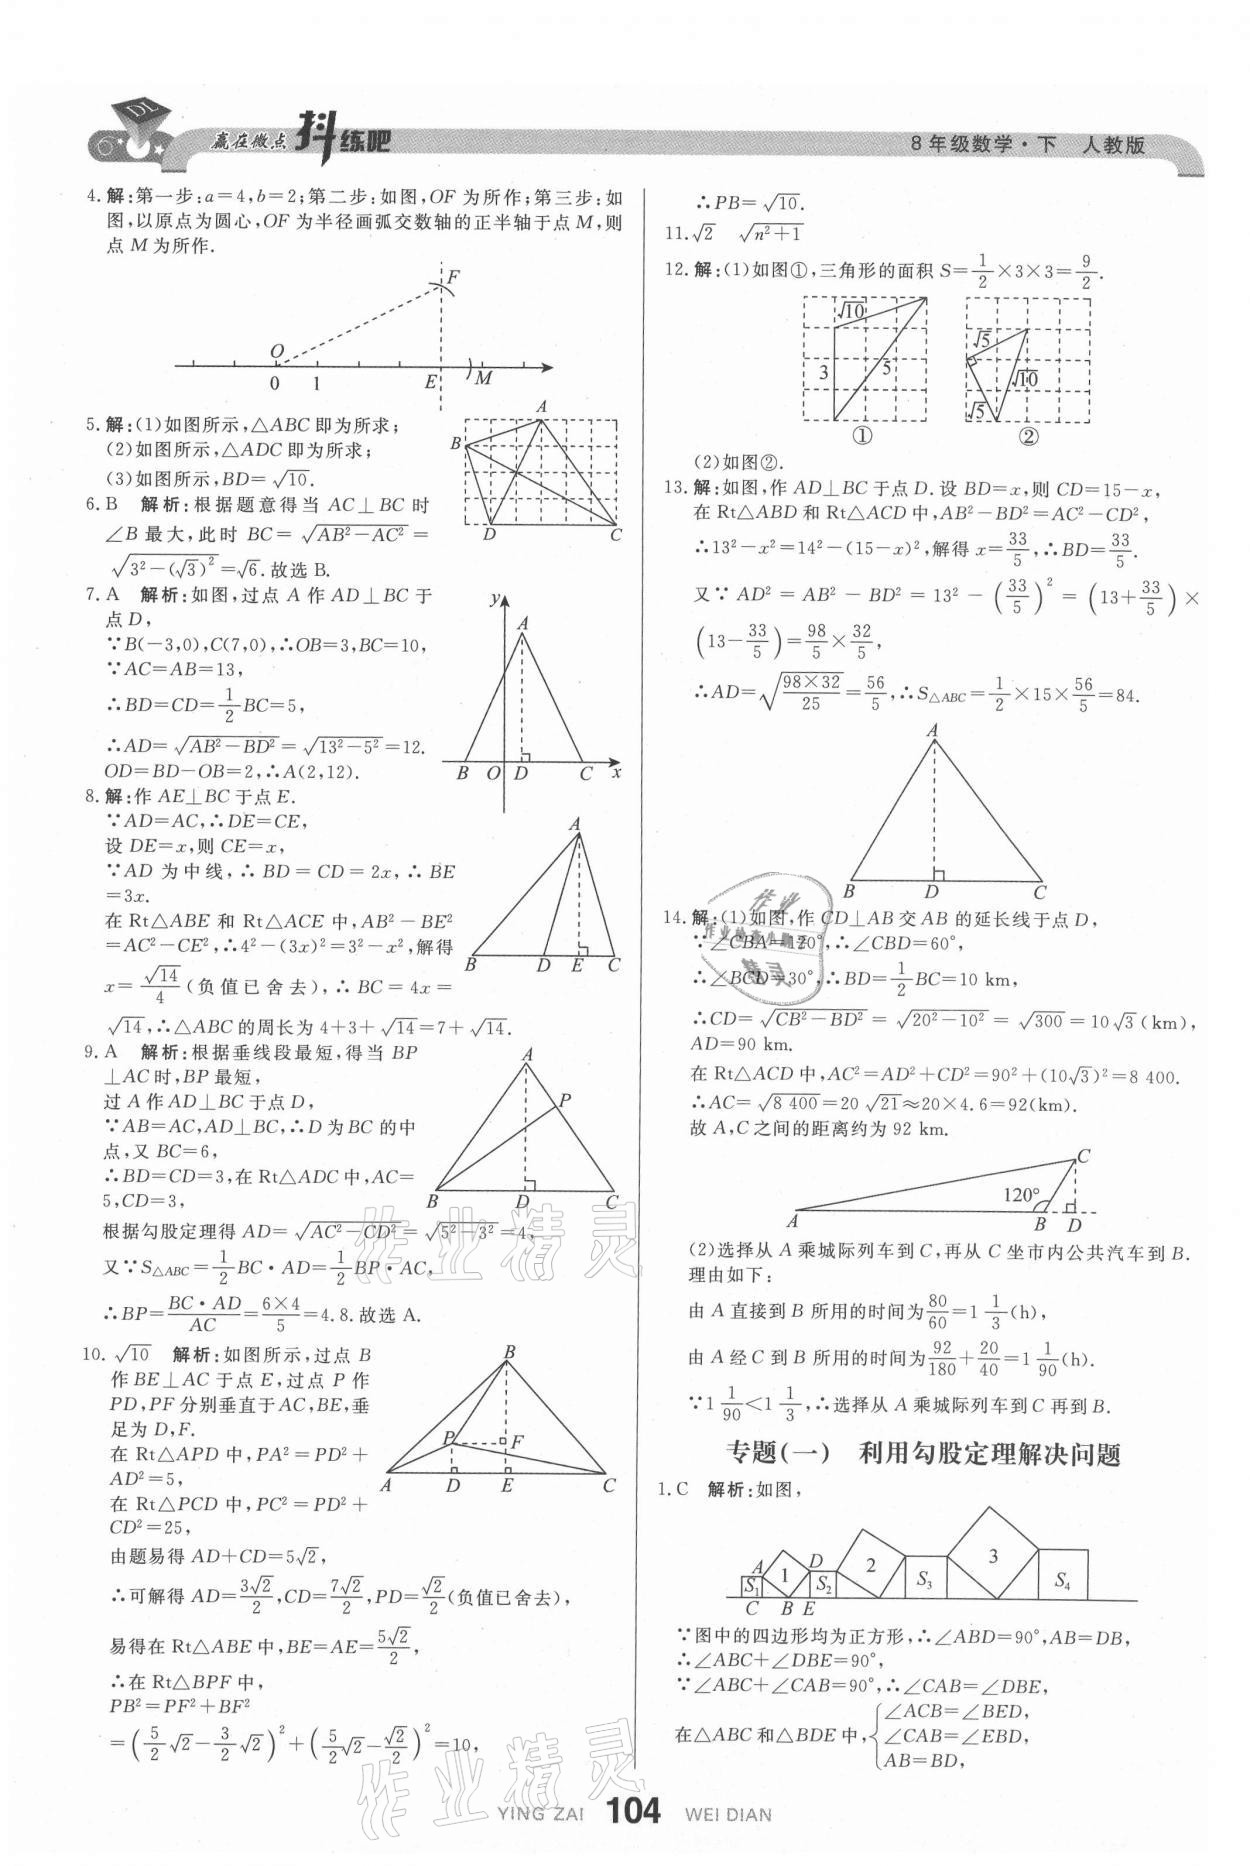 DL
赢在微点 抖练吧
8年级数学·下 人教版
4.解:第一步:a=4,b=2;第二步:如图,OF为所作;第三步:如
图,以原点为圆心,OF为半径画弧交数轴的正半轴于点M,则
点M为所作.
F
O
0 1 E M
5.解:(1)如图所示,△ABC即为所求;
(2)如图所示,△ADC即为所求;
(3)如图所示,BD=√10.
A
B
D C
6.B 解析:根据题意得当AC⊥BC时
∠B最大,此时BC=√(AB²-AC²)=
√(3²-(√3)²)=√6.故选B.
7.A 解析:如图,过点A作AD⊥BC于
点D,
∵B(-3,0),C(7,0),∴OB=3,BC=10,
∵AC=AB=13,
∴BD=CD=1/2BC=5,
∴AD=√(AB²-BD²)=√(13²-5²)=12.
OD=BD-OB=2,∴A(2,12).
y
A
B O D C x
8.解:作AE⊥BC于点E.
∵AD=AC,∴DE=CE,
设DE=x,则CE=x,
∵AD为中线,∴BD=CD=2x,∴BE
=3x.
在Rt△ABE和Rt△ACE中,AB²-BE²
=AC²-CE²,∴4²-(3x)²=3²-x²,解得
x=√14/4(负值已舍去),∴BC=4x=
√14,∴△ABC的周长为4+3+√14=7+√14.
A
B D E C
9.A 解析:根据垂线段最短,得当BP
⊥AC时,BP最短,
过A作AD⊥BC于点D,
∵AB=AC,AD⊥BC,∴D为BC的中
点,又BC=6,
∴BD=CD=3,在Rt△ADC中,AC=
5,CD=3,
根据勾股定理得AD=√(AC²-CD²)=√(5²-3²)=4,
又∵S△ABC=1/2BC·AD=1/2BP·AC,
∴BP=BC·AD/AC=6×4/5=4.8.故选A.
A
P
B D C
10.√10 解析:如图所示,过点B
作BE⊥AC于点E,过点P作
PD,PF分别垂直于AC,BE,垂
足为D,F.
在Rt△APD中,PA²=PD²+
AD²=5,
在Rt△PCD中,PC²=PD²+
CD²=25,
由题易得AD+CD=5√2,
∴可解得AD=3√2/2,CD=7√2/2,PD=√2/2(负值已舍去),
易得在Rt△ABE中,BE=AE=5√2/2,
∴在Rt△BPF中,
PB²=PF²+BF²
=(5/2√2-3/2√2)²+(5/2√2-√2/2)²=10,
B
P F
A D E C
∴PB=√10.
11.√2 √(n²+1)
12.解:(1)如图①,三角形的面积S=1/2×3×3=9/2.
√10
3 5
①
√5
√10
√5
②
(2)如图②.
13.解:如图,作AD⊥BC于点D.设BD=x,则CD=15-x,
在Rt△ABD和Rt△ACD中,AB²-BD²=AC²-CD²,
∴13²-x²=14²-(15-x)²,解得x=33/5,∴BD=33/5.
又∵AD²=AB²-BD²=13²-(33/5)²=(13+33/5)×
(13-33/5)=98/5×32/5,
∴AD=√(98×32/25)=56/5,∴S△ABC=1/2×15×56/5=84.
A
B D C
14.解:(1)如图,作CD⊥AB交AB的延长线于点D,
∵∠CBA=120°,∴∠CBD=60°,
∴∠BCD=30°,∴BD=1/2BC=10 km,
∴CD=√(CB²-BD²)=√(20²-10²)=√300=10√3(km),
AD=90 km.
在Rt△ACD中,AC²=AD²+CD²=90²+(10√3)²=8 400.
∴AC=√8 400=20√21≈20×4.6=92(km).
故A,C之间的距离约为92 km.
C
120°
A B D
(2)选择从A乘城际列车到C,再从C坐市内公共汽车到B.
理由如下:
由A直接到B所用的时间为80/60=1 1/3(h),
由A经C到B所用的时间为92/180+20/40=1 1/90(h).
∵1 1/90<1 1/3,∴选择从A乘城际列车到C再到B.
专题(一) 利用勾股定理解决问题
1.C 解析:如图,
A D
1 2 3
S₁ S₂ S₃ S₄
C B E
∵图中的四边形均为正方形,∴∠ABD=90°,AB=DB,
∴∠ABC+∠DBE=90°,
∵∠ABC+∠CAB=90°,∴∠CAB=∠DBE,
在△ABC和△BDE中,{∠ACB=∠BED,
∠CAB=∠EBD,
AB=BD,
作业精灵
作业精灵
YING ZAI 104 WEI DIAN